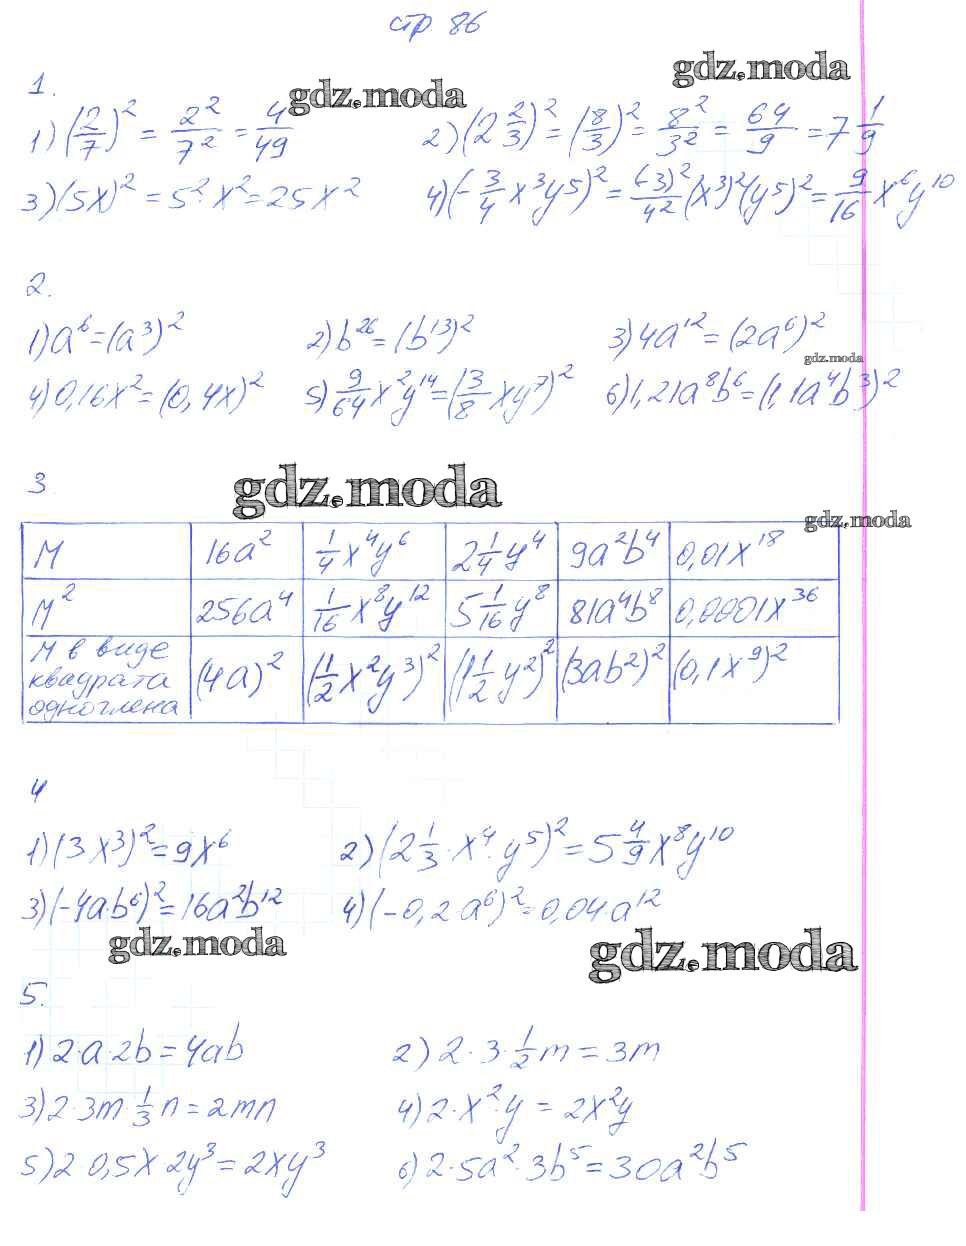 стр 86
1.
gdz.moda gdz.moda
1) (2/7)² = 2²/7² = 4/49 2) (2 2/3)² = (8/3)² = 8²/3² = 64/9 = 7 1/9
3) (5x)² = 5²·x² = 25x² 4) (-3/4 x³y⁵)² = (-3)²/4² (x³)²(y⁵)² = 9/16 x⁶y¹⁰
2.
1) a⁶ = (a³)² 2) b²⁶ = (b¹³)² 3) 4a¹² = (2a⁶)²
gdz.moda
4) 0,16x² = (0,4x)² 5) 9/64 x²y¹⁴ = (3/8 xy⁷)² 6) 1,21a⁸b⁶ = (1,1a⁴b³)²
3.
gdz.moda
gdz.moda
M 16a² 1/4 x⁴y⁶ 2 1/4 y⁴ 9a²b⁴ 0,01x¹⁸
M² 256a⁴ 1/16 x⁸y¹² 5 1/16 y⁸ 81a⁴b⁸ 0,0001x³⁶
M в виде
квадрата
одночлена (4a)² (1/2 x²y³)² (1 1/2 y²)² (3ab²)² (0,1x⁹)²
4
1) (3x³)² = 9x⁶ 2) (2 1/3·x⁴·y⁵)² = 5 4/9 x⁸y¹⁰
3) (-4a·b⁶)² = 16a²b¹² 4) (-0,2·a⁶)² = 0,04·a¹²
gdz.moda gdz.moda
5.
1) 2·a·2b = 4ab 2) 2·3·1/2 m = 3m
3) 2·3m·1/3 n = 2mn 4) 2·x²·y = 2x²y
5) 2·0,5x·2y³ = 2xy³ 6) 2·5a²·3b⁵ = 30a²b⁵